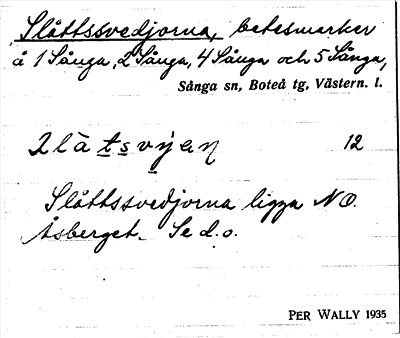 Slåttssvedjorna, betesmarker
å 1 Sånga, 2 Sånga, 4 Sånga och 5 Sånga,
Sånga sn, Boteå tg, Västern. l.
12
Slåttssvedjorna ligga NO.
Åsberget. Se d.o.
PER WALLY 1935